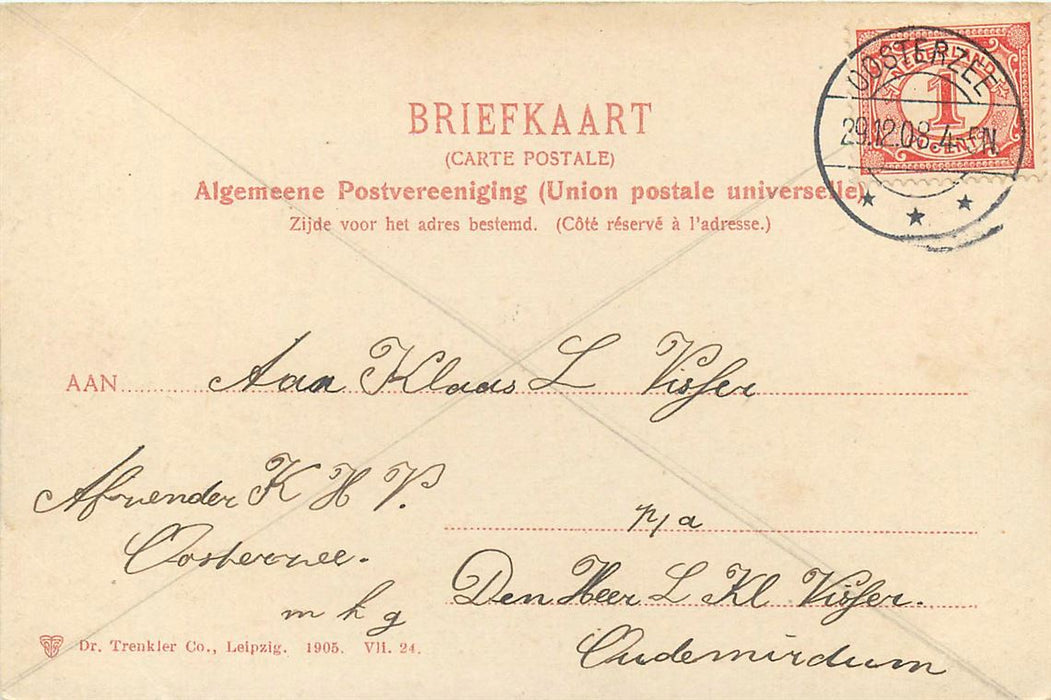 BRIEFKAART
(CARTE POSTALE)
Algemeene Postvereeniging (Union postale universelle)
Zijde voor het adres bestemd. (Côté réservé à l'adresse.)
NEDERLAND
1
CENT
OOSTERZEE
29.12.08.4-5N
AAN Aan Klaas L Visser
Afzender K H V.
Oosterzee.
m h g
p/a
Den Heer L Kl Visser.
Oudemirdum
Dr. Trenkler Co., Leipzig. 1905. Vli. 24.